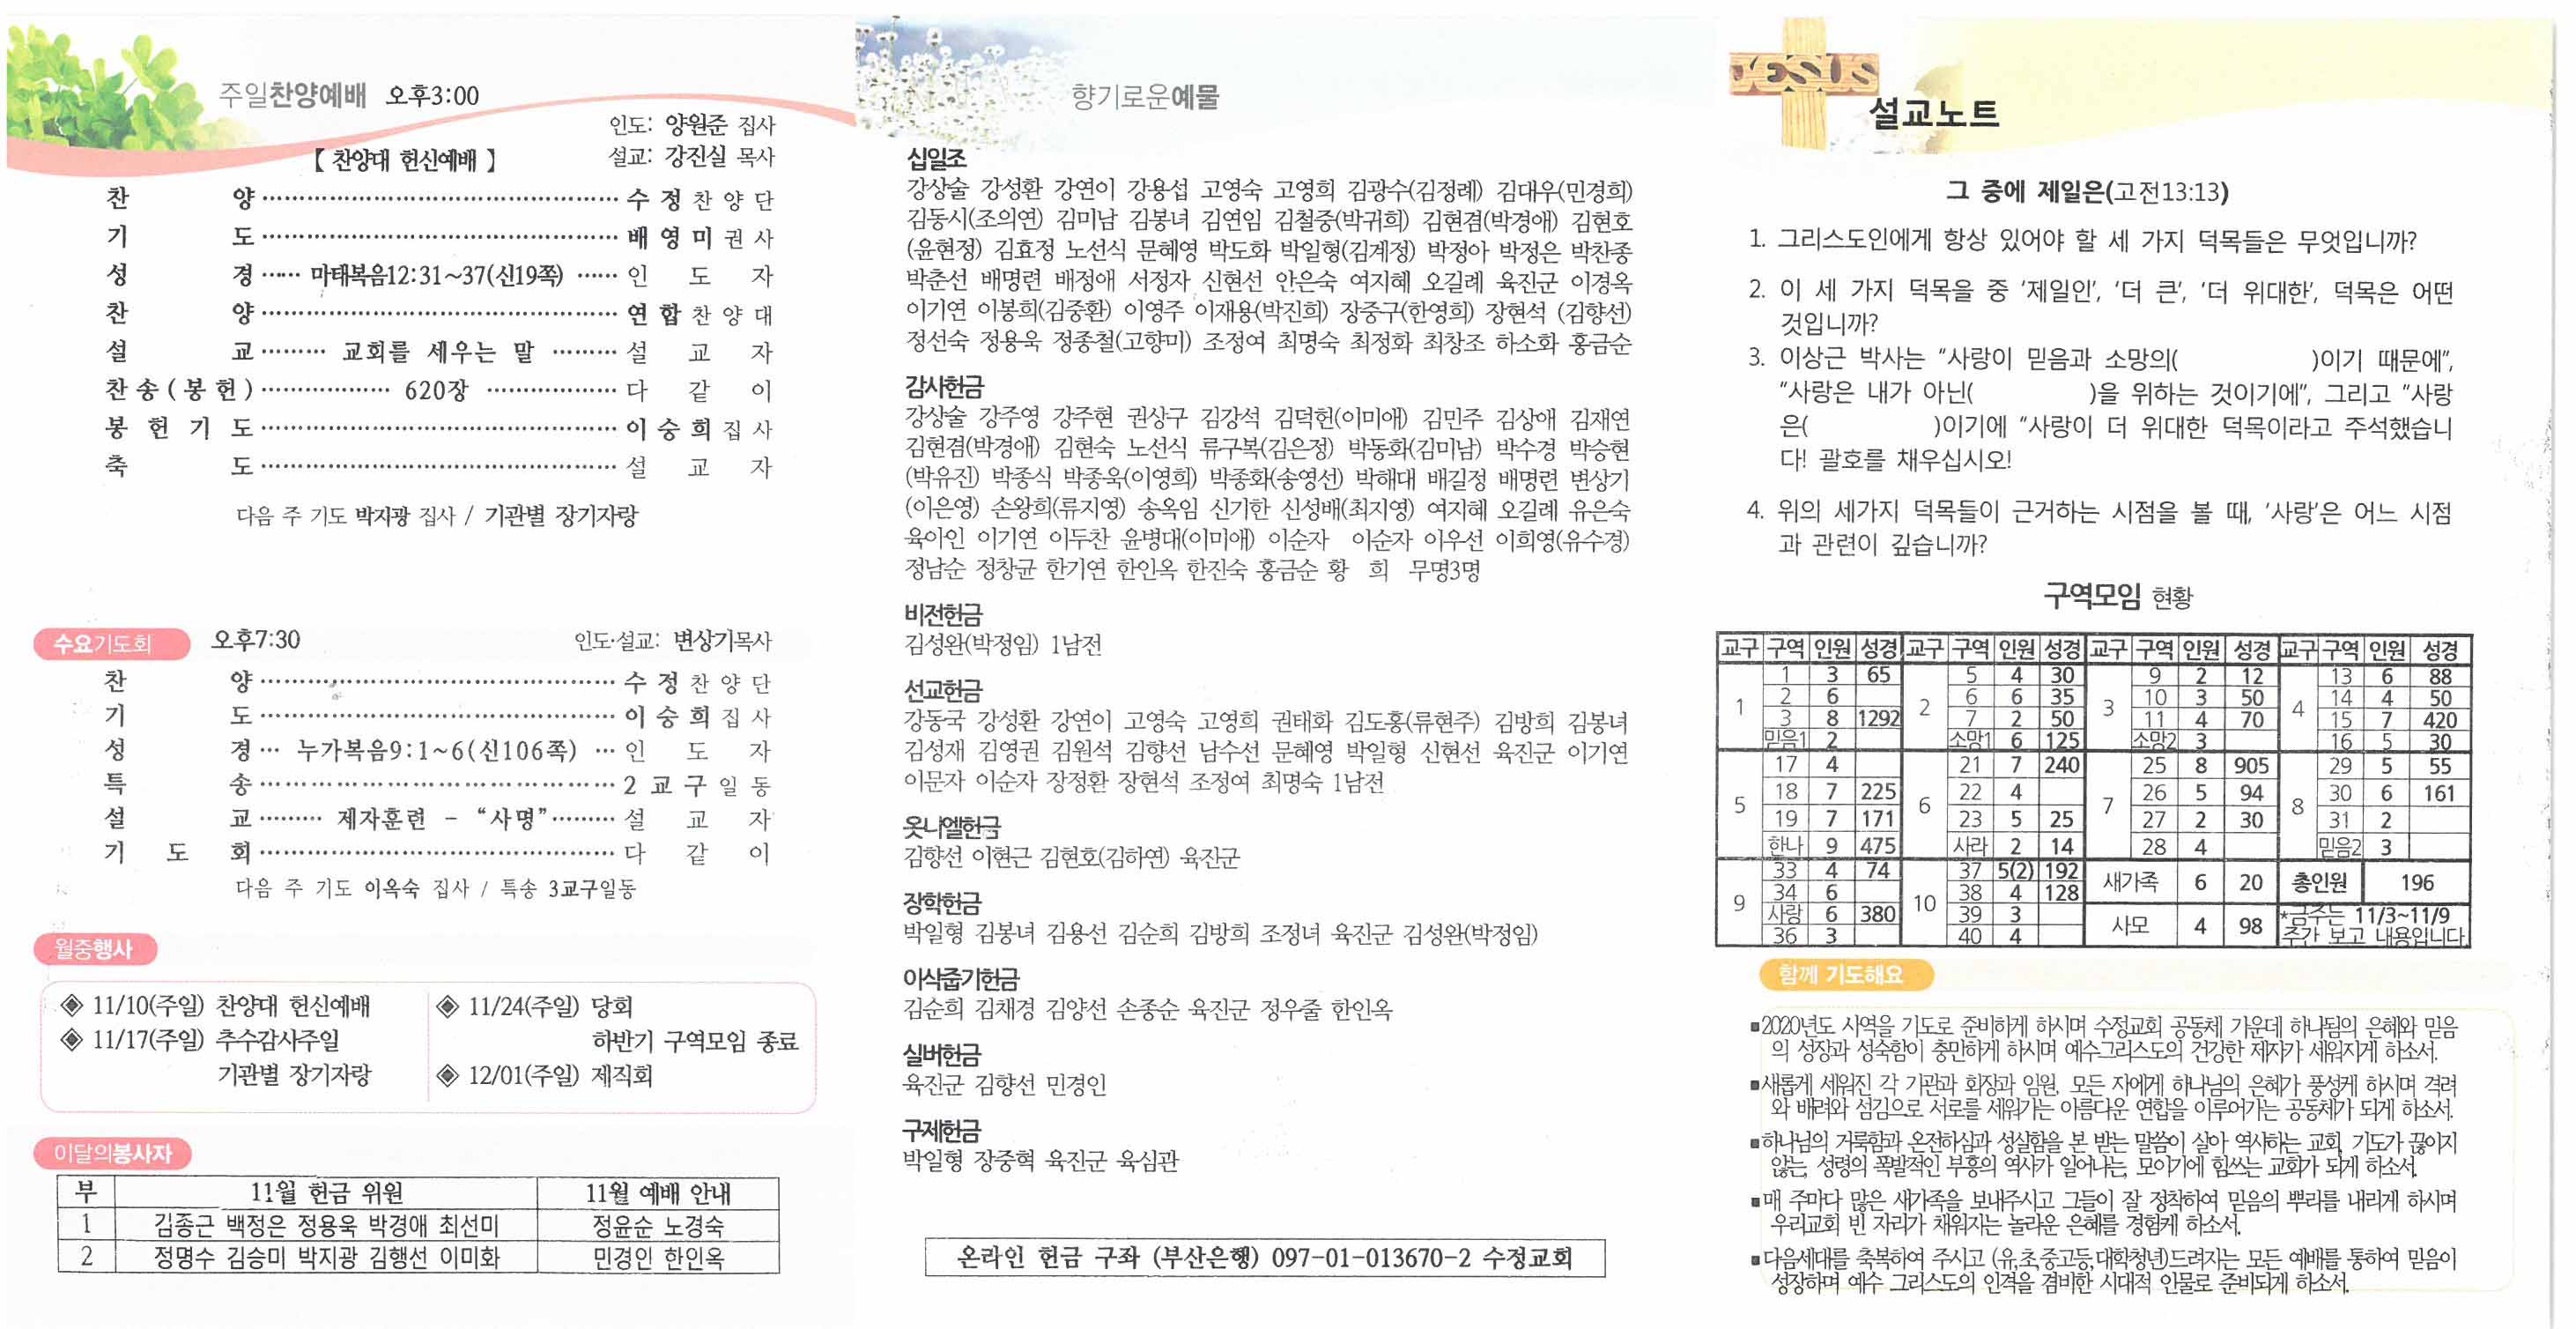 주일찬양예배 오후3:00
인도: 양원준 집사
【 찬양대 헌신예배 】 설교: 강진실 목사
찬 양 ········ 수 정 찬 양 단
기 도 ········ 배 영 미 권 사
성 경 ······ 마태복음12:31~37(신19쪽) ······ 인 도 자
찬 양 ········ 연 합 찬 양 대
설 교 ········· 교회를 세우는 말 ········· 설 교 자
찬 송 ( 봉 헌 ) ········ 620장 ········ 다 같 이
봉 헌 기 도 ········ 이 숭 희 집 사
축 도 ········ 설 교 자
다음 주 기도 박지광 집사 / 기관별 장기자랑
수요기도회 오후7:30 인도·설교: 변상기목사
찬 양 ········ 수 정 찬 양 단
기 도 ········ 이 숭 희 집 사
성 경 ··· 누가복음9:1~6(신106쪽) ··· 인 도 자
특 송 ········ 2 교 구 일 동
설 교 ········· 제자훈련 - “사명” ········· 설 교 자
기 도 회 ········ 다 같 이
다음 주 기도 이옥숙 집사 / 특송 3교구일동
월중행사
◈ 11/10(주일) 찬양대 헌신예배
◈ 11/17(주일) 추수감사주일
기관별 장기자랑
◈ 11/24(주일) 당회
하반기 구역모임 종료
◈ 12/01(주일) 제직회
이달의봉사자
부 11월 헌금 위원 11월 예배 안내
1 김종근 백정은 정용욱 박경애 최선미 정윤순 노경숙
2 정명수 김승미 박지광 김행선 이미화 민경인 한인옥
향기로운예물
십일조
강상술 강성환 강연이 강용섭 고영숙 고영희 김광수(김정례) 김대우(민경희)
김동시(조의연) 김미남 김봉녀 김연임 김철중(박귀희) 김현겸(박경애) 김현호
(윤현정) 김효정 노선식 문혜영 박도화 박일형(김계정) 박정아 박정은 박찬종
박춘선 배명련 배정애 서정자 신현선 안은숙 여지혜 오길례 육진군 이경옥
이기연 이봉희(김중환) 이영주 이재용(박진희) 장중구(한영희) 장현석 (김향선)
정선숙 정용욱 정종철(고향미) 조정여 최명숙 최정화 최창조 하소화 홍금순
감사헌금
강상술 강주영 강주현 권상구 김강석 김덕헌(이미애) 김민주 김상애 김재연
김현겸(박경애) 김현숙 노선식 류구복(김은정) 박동화(김미남) 박수경 박승현
(박유진) 박종식 박종욱(이영희) 박종화(송영선) 박해대 배길정 배명련 변상기
(이은영) 손왕희(류지영) 송옥임 신기한 신성배(최지영) 여지혜 오길례 유은숙
육아인 이기연 이두찬 윤병대(이미애) 이순자 이순자 이우선 이희영(유수경)
정남순 정창균 한기연 한인옥 한진숙 홍금순 황 희 무명3명
비전헌금
김성완(박정임) 1남전
선교헌금
강동국 강성환 강연이 고영숙 고영희 권태화 김도홍(류현주) 김방희 김봉녀
김성재 김영권 김원석 김향선 남수선 문혜영 박일형 신현선 육진군 이기연
이문자 이순자 장정환 장현석 조정여 최명숙 1남전
옷니엘헌금
김향선 이현근 김현호(김하연) 육진군
장학헌금
박일형 김봉녀 김용선 김순희 김방희 조정녀 육진군 김성완(박정임)
이삭줍기헌금
김순희 김채경 김양선 손종순 육진군 정우줄 한인옥
실버헌금
육진군 김향선 민경인
구제헌금
박일형 장중혁 육진군 육심관
온라인 헌금 구좌 (부산은행) 097-01-013670-2 수정교회
JESUS
설교노트
그 중에 제일은(고전13:13)
1. 그리스도인에게 항상 있어야 할 세 가지 덕목들은 무엇입니까?
2. 이 세 가지 덕목을 중 ‘제일인’, ‘더 큰’, ‘더 위대한’, 덕목은 어떤
것입니까?
3. 이상근 박사는 “사랑이 믿음과 소망의( )이기 때문에”,
“사랑은 내가 아닌( )을 위하는 것이기에”, 그리고 “사랑
은( )이기에 “사랑이 더 위대한 덕목이라고 주석했습니
다! 괄호를 채우십시오!
4. 위의 세가지 덕목들이 근거하는 시점을 볼 때, ‘사랑’은 어느 시점
과 관련이 깊습니까?
구역모임 현황
교구 구역 인원 성경 교구 구역 인원 성경 교구 구역 인원 성경 교구 구역 인원 성경
1 1 3 65 2 5 4 30 3 9 2 12 4 13 6 88
2 6 6 6 35 10 3 50 14 4 50
3 8 1292 7 2 50 11 4 70 15 7 420
믿음1 2 소망1 6 125 소망2 3 16 5 30
5 17 4 6 21 7 240 7 25 8 905 8 29 5 55
18 7 225 22 4 26 5 94 30 6 161
19 7 171 23 5 25 27 2 30 31 2
한나 9 475 사라 2 14 28 4 믿음2 3
9 33 4 74 10 37 5(2) 192 새가족 6 20 총인원 196
34 6 38 4 128
사랑 6 380 39 3 사모 4 98 *금주는 11/3~11/9
36 3 40 4 주간 보고 내용입니다
함께 기도해요
■2020년도 사역을 기도로 준비하게 하시며 수정교회 공동체 가운데 하나됨의 은혜와 믿음
의 성장과 성숙함이 충만하게 하시며 예수그리스도의 건강한 제자가 세워지게 하소서.
■새롭게 세워진 각 기관과 회장과 임원, 모든 자에게 하나님의 은혜가 풍성게 하시며 격려
와 배려와 섬김으로 서로를 세워가는 아름다운 연합을 이루어가는 공동체가 되게 하소서.
■하나님의 거룩함과 온전하심과 성실함을 본 받는 말씀이 살아 역사하는 교회, 기도가 끊이지
않는, 성령의 폭발적인 부흥의 역사가 일어나는, 모이기에 힘쓰는 교회가 되게 하소서.
■매 주마다 많은 새가족을 보내주시고 그들이 잘 정착하여 믿음의 뿌리를 내리게 하시며
우리교회 빈 자리가 채워지는 놀라운 은혜를 경험케 하소서.
■다음세대를 축복하여 주시고 (유,초,중고등,대학청년)드려지는 모든 예배를 통하여 믿음이
성장하며 예수 그리스도의 인격을 겸비한 시대적 인물로 준비되게 하소서.